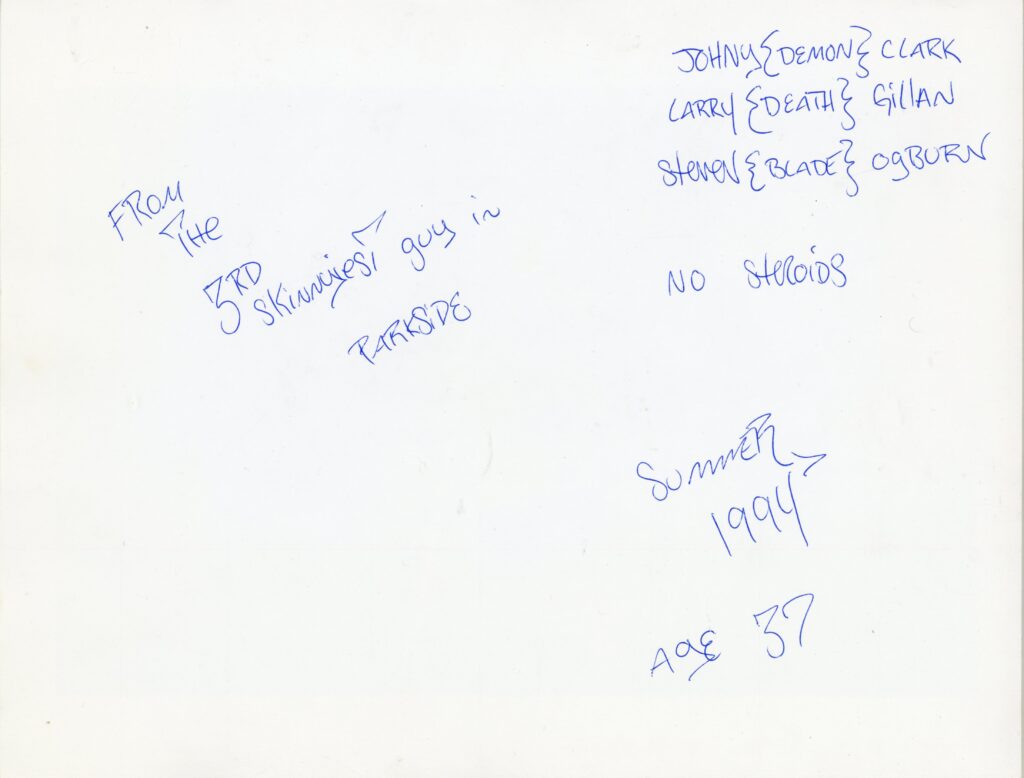 JOHNY {DEMON} CLARK
LARRY {DEATH} GillAN
Steven {BLADE} OgBURN
NO SteROiDS
FROM
THE
3RD
SKinnyiest guy in
PARKSiDE
SummER
1994
AgE 37